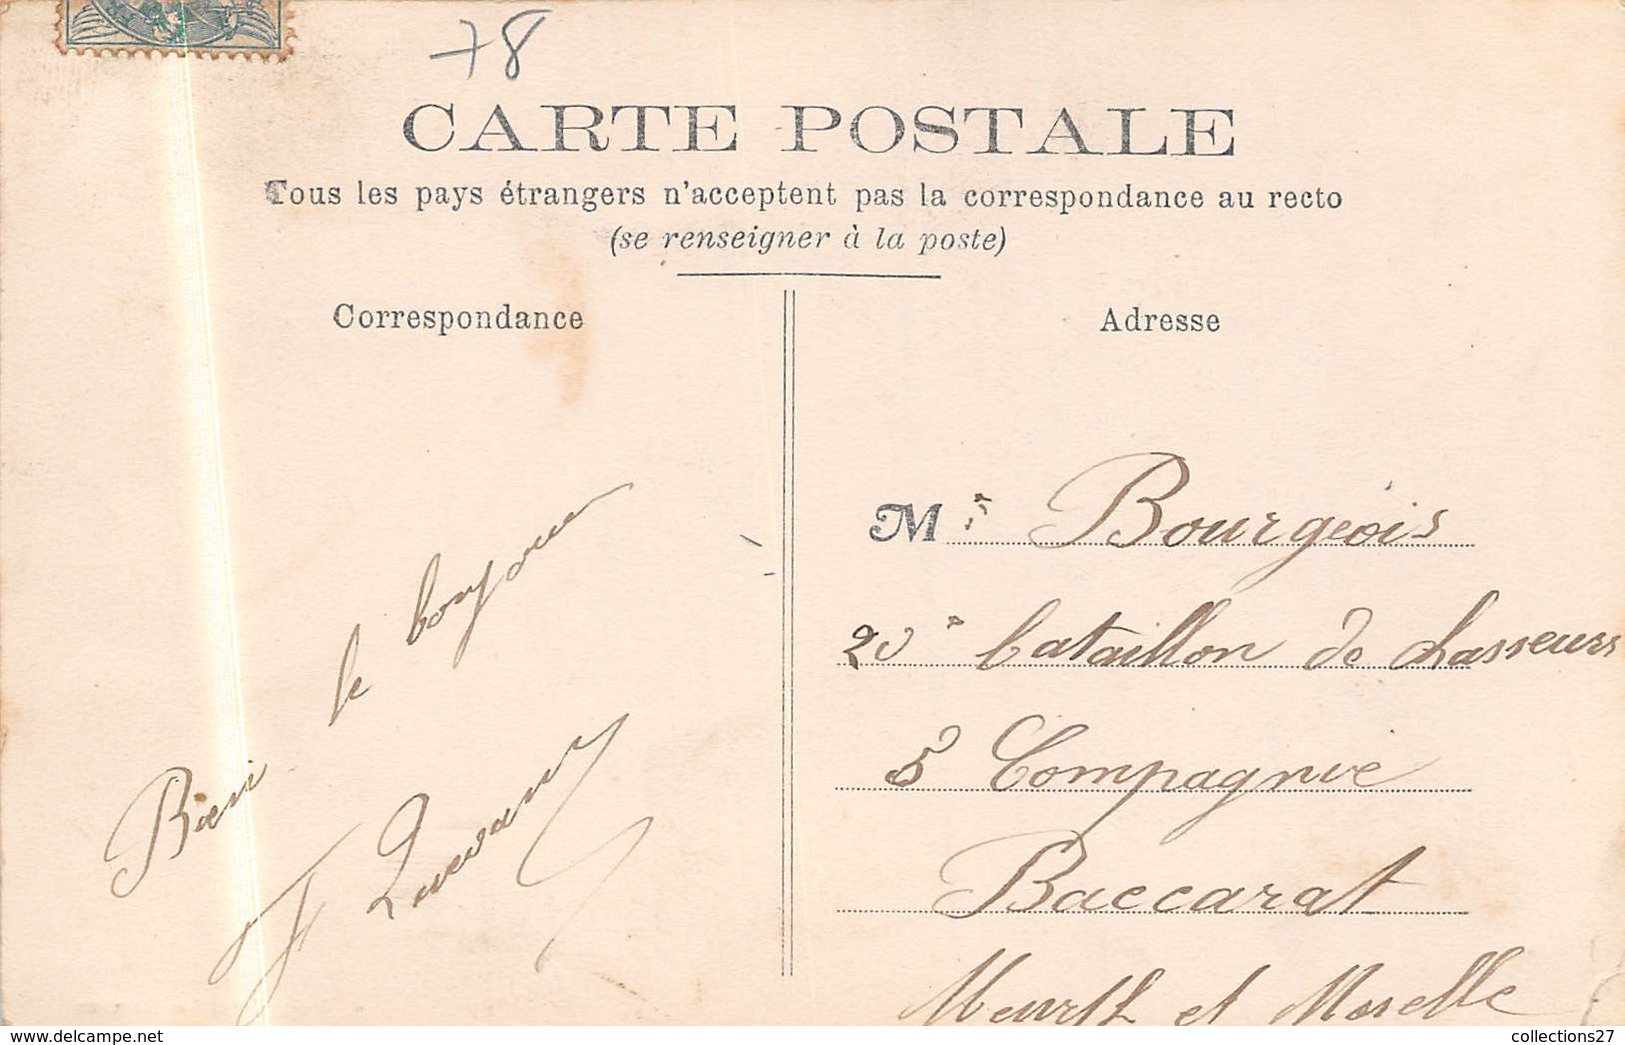 78
CARTE POSTALE
Tous les pays étrangers n'acceptent pas la correspondance au recto
(se renseigner à la poste)
Correspondance
Adresse
Bien le bonjour
Mr Bourgeois
20e bataillon de chasseurs
5 Compagnie
Baccarat
Meurthe et Moselle
https://www.delcampe.net
collections27